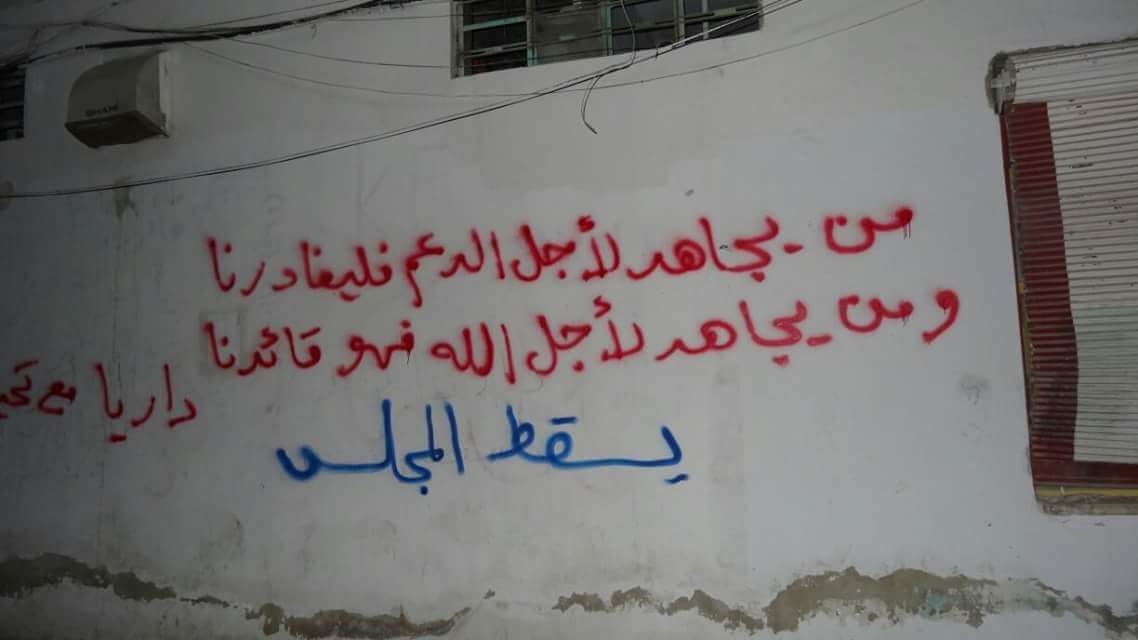 من يجاهد لأجل الدعم فليغادرنا
ومن يجاهد لأجل الله فهو قائدنا
داريا مع
يسقط المجلس